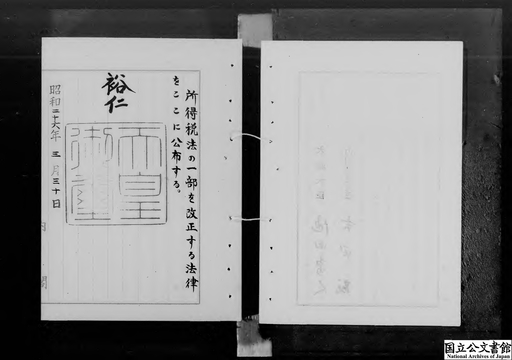 所得税法の一部を改正する法律
をここに公布する。
裕仁
天皇
御璽
昭和二十六年 三月三十日
内 閣
国立公文書館
National Archives of Japan